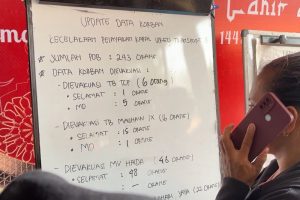 UPDATE DATA KORBAN
KECELAKAAN PELAYARAN KAPAL
JUMLAH POB : 243 ORANG
DATA KORBAN DIEVAKUASI :
- DIEVAKUASI TB TCP (6 Orang)
• SELAMAT : 1 ORANG
• MD : 5 ORANG
- DIEVAKUASI TB IX (16 ORANG)
• SELAMAT : 15 ORANG
• MD : 1 ORANG
- DIEVAKUASI MV HAIDA (48 ORANG)
SELAMAT : 48 ORANG
: - ORANG
144